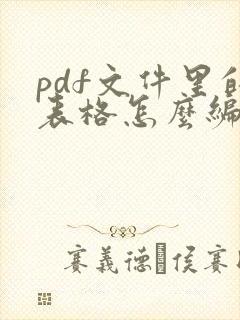 pdf文件里的
表格怎麼編
賽義德·侯賽